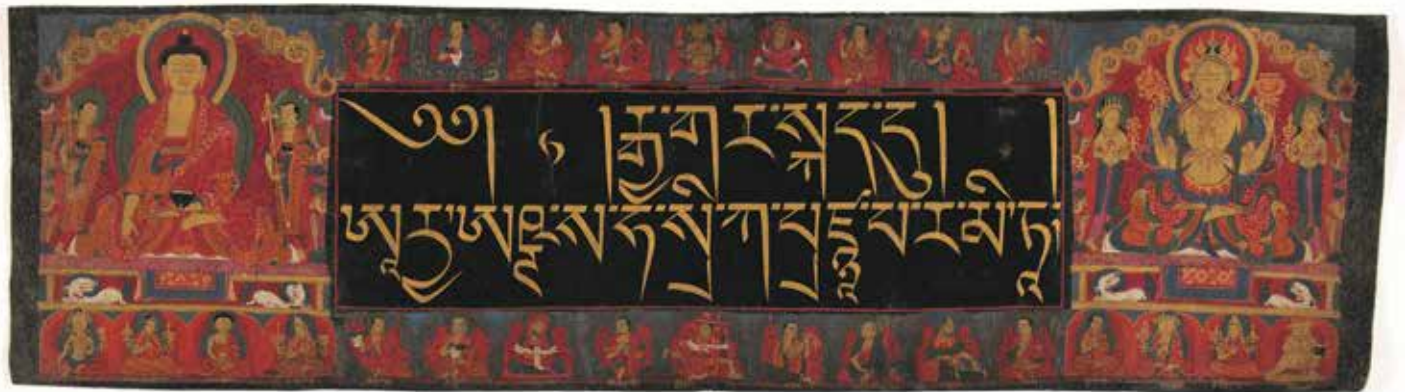 ༄༅། །རྒྱ་གར་སྐད་དུ། །
ཨཱརྱ་ཨཥྚ་ས་ཧ་སྲི་ཀ་པྲ་ཛྙཱ་པ་ར་མི་ཏཱ